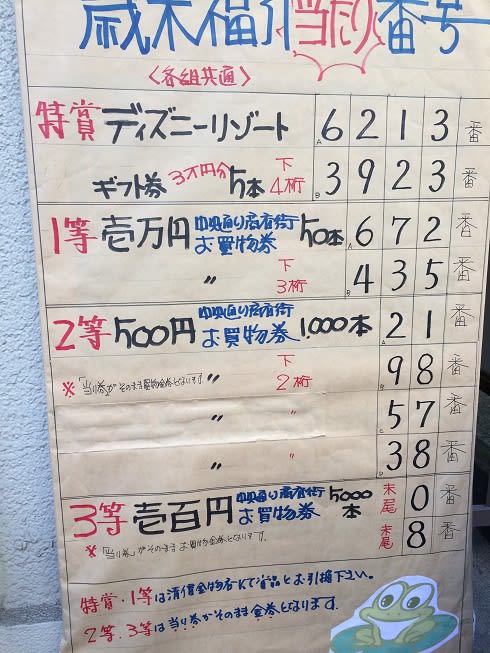 歳末福引当たり番号
〈各組共通〉
特賞 ディズニーリゾート A 6213番
ギフト券 3万円分 5本 下4桁 B 3923番
1等 壱万円 中央通り商店街 お買物券 50本 A 672番
〃 下3桁 B 435番
2等 500円 中央通り商店街 お買物券 1,000本 A 21番
※「当り券」がそのまま買物金券となります 〃 下2桁 B 98番
〃 〃 C 57番
〃 〃 D 38番
3等 壱百円 中央通り商店街 お買物券 5000本 末尾 0番
※「当り券」がそのままお買物金券となります。 末尾 8番
特賞・1等は清信金物店にて賞品とお引換下さい。
2等、3等は当り券がそのまま金券となります。